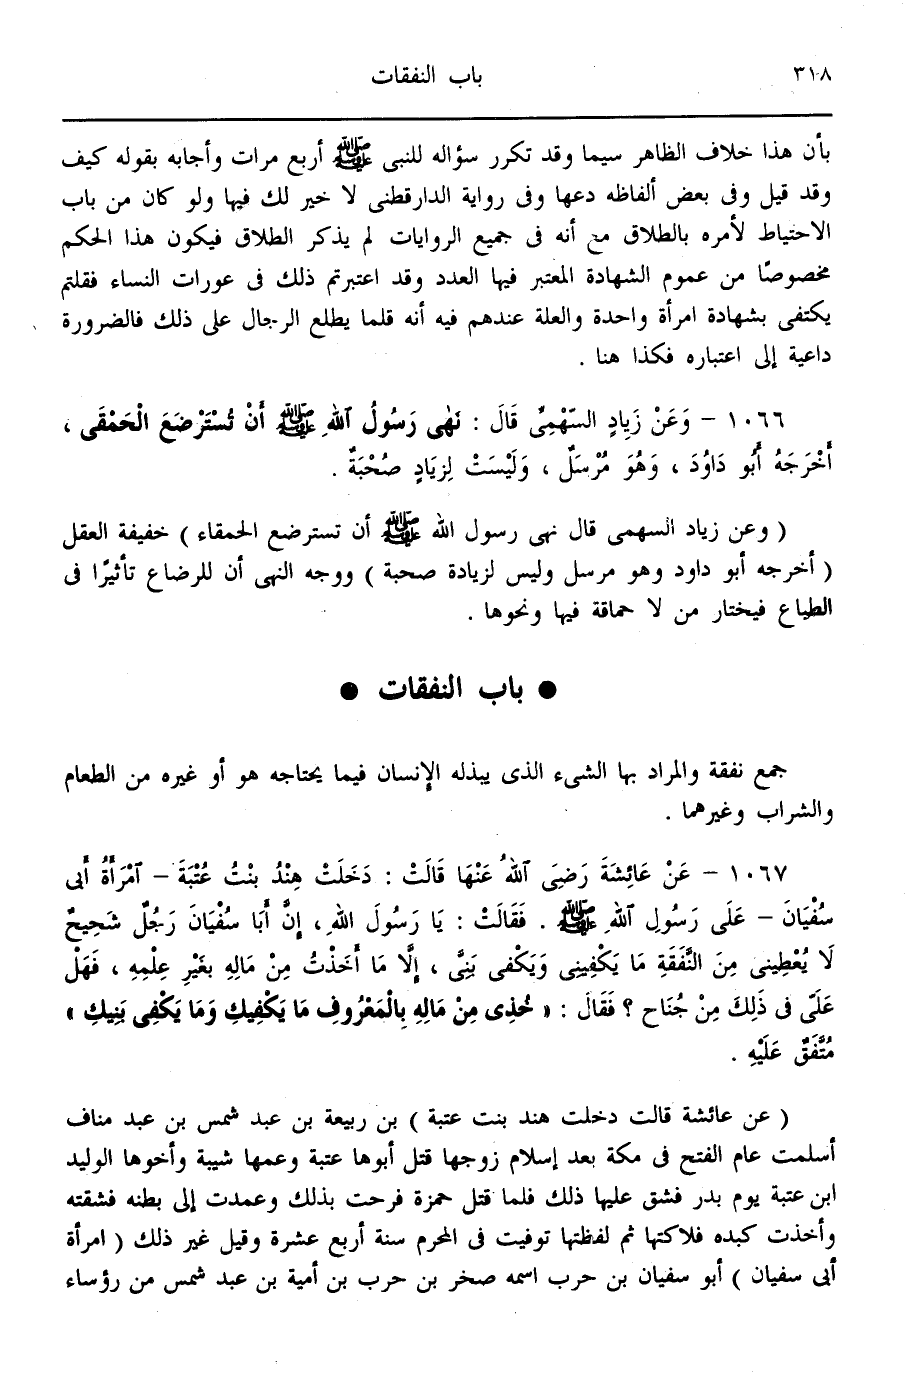 ٣١٨ باب النفقات
بأن هذا خلاف الظاهر سيما وقد تكرر سؤاله للنبى ﷺ أربع مرات وأجابه بقوله كيف
وقد قيل وفى بعض ألفاظه دعها وفى رواية الدارقطنى لا خير لك فيها ولو كان من باب
الاحتياط لأمره بالطلاق مع أنه فى جميع الروايات لم يذكر الطلاق فيكون هذا الحكم
مخصوصًا من عموم الشهادة المعتبر فيها العدد وقد اعتبرتم ذلك فى عورات النساء فقلتم
يكتفى بشهادة امرأة واحدة والعلة عندهم فيه أنه قلما يطلع الرجال على ذلك فالضرورة
داعية إلى اعتباره فكذا هنا .
١٠٦٦ – وَعَنْ زِيَادٍ السَّهْمِىِّ قَالَ : نَهٰى رَسُولُ ٱللهِ ﷺ أَنْ تُسْتَرْضَعَ الْحَمْقَى ،
أَخْرَجَهُ أَبُو دَاوُدَ ، وَهُوَ مُرْسَلٌ ، وَلَيْسَتْ لِزِيَادٍ صُحْبَةٌ .
( وعن زياد السهمى قال نهى رسول الله ﷺ أن تسترضع الحمقاء ) خفيفة العقل
( أخرجه أبو داود وهو مرسل وليس لزيادة صحبة ) ووجه النهى أن للرضاع تأثيرًا فى
الطباع فيختار من لا حماقة فيها ونحوها .
● باب النفقات ●
جمع نفقة والمراد بها الشىء الذى يبذله الإنسان فيما يحتاجه هو أو غيره من الطعام
والشراب وغيرهما .
١٠٦٧ – عَنْ عَائِشَةَ رَضِىَ ٱللهُ عَنْهَا قَالَتْ : دَخَلَتْ هِنْدُ بِنْتُ عُتْبَةَ – ٱمْرَأَةُ أَبِى
سُفْيَانَ – عَلَى رَسُولِ ٱللهِ ﷺ . فَقَالَتْ : يَا رَسُولَ اللهِ ، إِنَّ أَبَا سُفْيَانَ رَجُلٌ شَحِيحٌ
لَا يُعْطِينِى مِنَ النَّفَقَةِ مَا يَكْفِينِى وَيَكْفِى بَنِىَّ ، إِلَّا مَا أَخَذْتُ مِنْ مَالِهِ بِغَيْرِ عِلْمِهِ ، فَهَلْ
عَلَىَّ فِى ذَلِكَ مِنْ جُنَاحٍ ؟ فَقَالَ : « خُذِى مِنْ مَالِهِ بِالْمَعْرُوفِ مَا يَكْفِيكِ وَمَا يَكْفِى بَنِيكِ »
مُتَّفَقٌ عَلَيْهِ .
( عن عائشة قالت دخلت هند بنت عتبة ) بن ربيعة بن عبد شمس بن عبد مناف
أسلمت عام الفتح فى مكة بعد إسلام زوجها قتل أبوها عتبة وعمها شيبة وأخوها الوليد
ابن عتبة يوم بدر فشق عليها ذلك فلما قتل حمزة فرحت بذلك وعمدت إلى بطنه فشقته
وأخذت كبده فلاكتها ثم لفظتها توفيت فى المحرم سنة أربع عشرة وقيل غير ذلك ( امرأة
أبى سفيان ) أبو سفيان بن حرب اسمه صخر بن حرب بن أمية بن عبد شمس من رؤساء